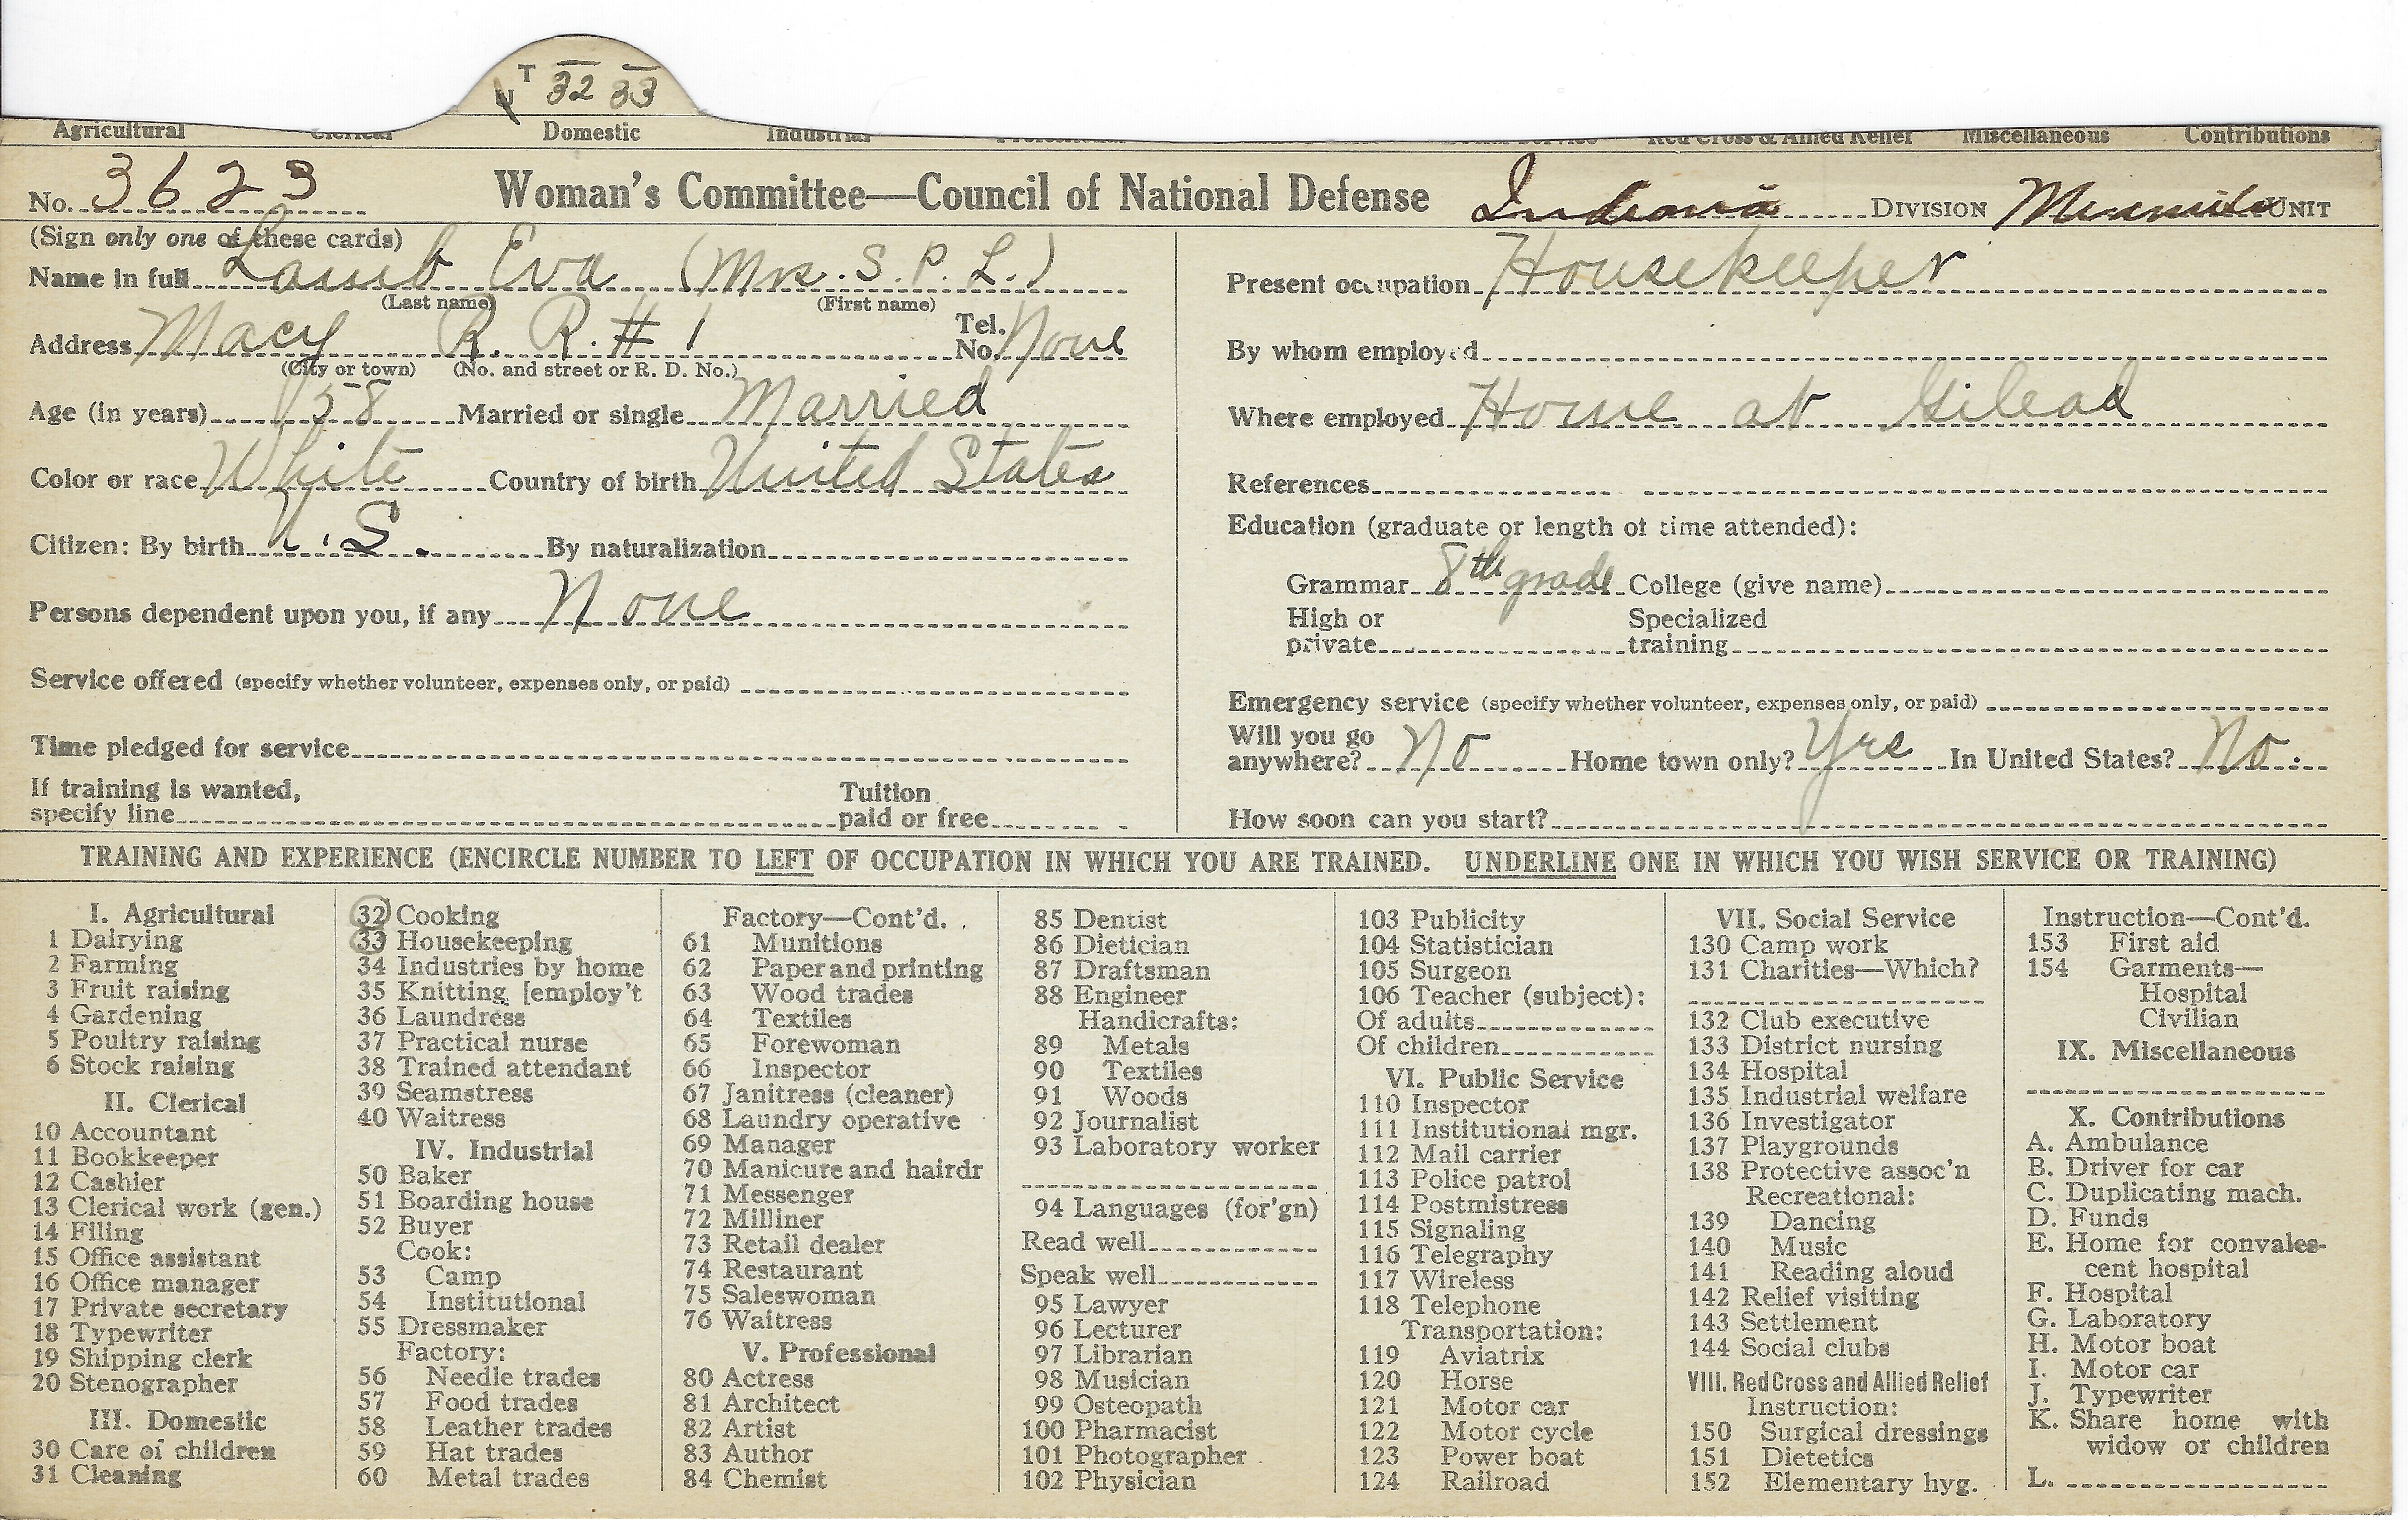 T 32 33
Agricultural Clerical Domestic Industrial Red Cross & Allied Relief Miscellaneous Contributions
No. 3623 Woman's Committee—Council of National Defense Indiana DIVISION UNIT
(Sign only one of these cards)
Name in full Lamb Eva (Mrs. S. P. L.)
(Last name) (First name)
Address Macy R. R. # 1 Tel. No. None
(City or town) (No. and street or R. D. No.)
Age (in years) 58 Married or single Married
Color or race White Country of birth United States
Citizen: By birth U.S. By naturalization
Persons dependent upon you, if any None
Service offered (specify whether volunteer, expenses only, or paid)
Time pledged for service
If training is wanted,
specify line Tuition paid or free
Present occupation Housekeeper
By whom employed
Where employed Home at Gilead
References
Education (graduate or length of time attended):
Grammar 8th grade College (give name)
High or private Specialized training
Emergency service (specify whether volunteer, expenses only, or paid)
Will you go anywhere? No Home town only? Yes In United States? No.
How soon can you start?
TRAINING AND EXPERIENCE (ENCIRCLE NUMBER TO LEFT OF OCCUPATION IN WHICH YOU ARE TRAINED. UNDERLINE ONE IN WHICH YOU WISH SERVICE OR TRAINING)
I. Agricultural
1 Dairying
2 Farming
3 Fruit raising
4 Gardening
5 Poultry raising
6 Stock raising
II. Clerical
10 Accountant
11 Bookkeeper
12 Cashier
13 Clerical work (gen.)
14 Filing
15 Office assistant
16 Office manager
17 Private secretary
18 Typewriter
19 Shipping clerk
20 Stenographer
III. Domestic
30 Care of children
31 Cleaning
32 Cooking
33 Housekeeping
34 Industries by home
35 Knitting [employ't
36 Laundress
37 Practical nurse
38 Trained attendant
39 Seamstress
40 Waitress
IV. Industrial
50 Baker
51 Boarding house
52 Buyer
Cook:
53 Camp
54 Institutional
55 Dressmaker
Factory:
56 Needle trades
57 Food trades
58 Leather trades
59 Hat trades
60 Metal trades
Factory—Cont'd.
61 Munitions
62 Paper and printing
63 Wood trades
64 Textiles
65 Forewoman
66 Inspector
67 Janitress (cleaner)
68 Laundry operative
69 Manager
70 Manicure and hairdr
71 Messenger
72 Milliner
73 Retail dealer
74 Restaurant
75 Saleswoman
76 Waitress
V. Professional
80 Actress
81 Architect
82 Artist
83 Author
84 Chemist
85 Dentist
86 Dietician
87 Draftsman
88 Engineer
Handicrafts:
89 Metals
90 Textiles
91 Woods
92 Journalist
93 Laboratory worker
94 Languages (for'gn)
Read well
Speak well
95 Lawyer
96 Lecturer
97 Librarian
98 Musician
99 Osteopath
100 Pharmacist
101 Photographer
102 Physician
103 Publicity
104 Statistician
105 Surgeon
106 Teacher (subject):
Of adults
Of children
VI. Public Service
110 Inspector
111 Institutional mgr.
112 Mail carrier
113 Police patrol
114 Postmistress
115 Signaling
116 Telegraphy
117 Wireless
118 Telephone
Transportation:
119 Aviatrix
120 Horse
121 Motor car
122 Motor cycle
123 Power boat
124 Railroad
VII. Social Service
130 Camp work
131 Charities—Which?
132 Club executive
133 District nursing
134 Hospital
135 Industrial welfare
136 Investigator
137 Playgrounds
138 Protective assoc'n
Recreational:
139 Dancing
140 Music
141 Reading aloud
142 Relief visiting
143 Settlement
144 Social clubs
VIII. Red Cross and Allied Relief
Instruction:
150 Surgical dressings
151 Dietetics
152 Elementary hyg.
Instruction—Cont'd.
153 First aid
154 Garments—
Hospital
Civilian
IX. Miscellaneous
X. Contributions
A. Ambulance
B. Driver for car
C. Duplicating mach.
D. Funds
E. Home for convales-
cent hospital
F. Hospital
G. Laboratory
H. Motor boat
I. Motor car
J. Typewriter
K. Share home with
widow or children
L.